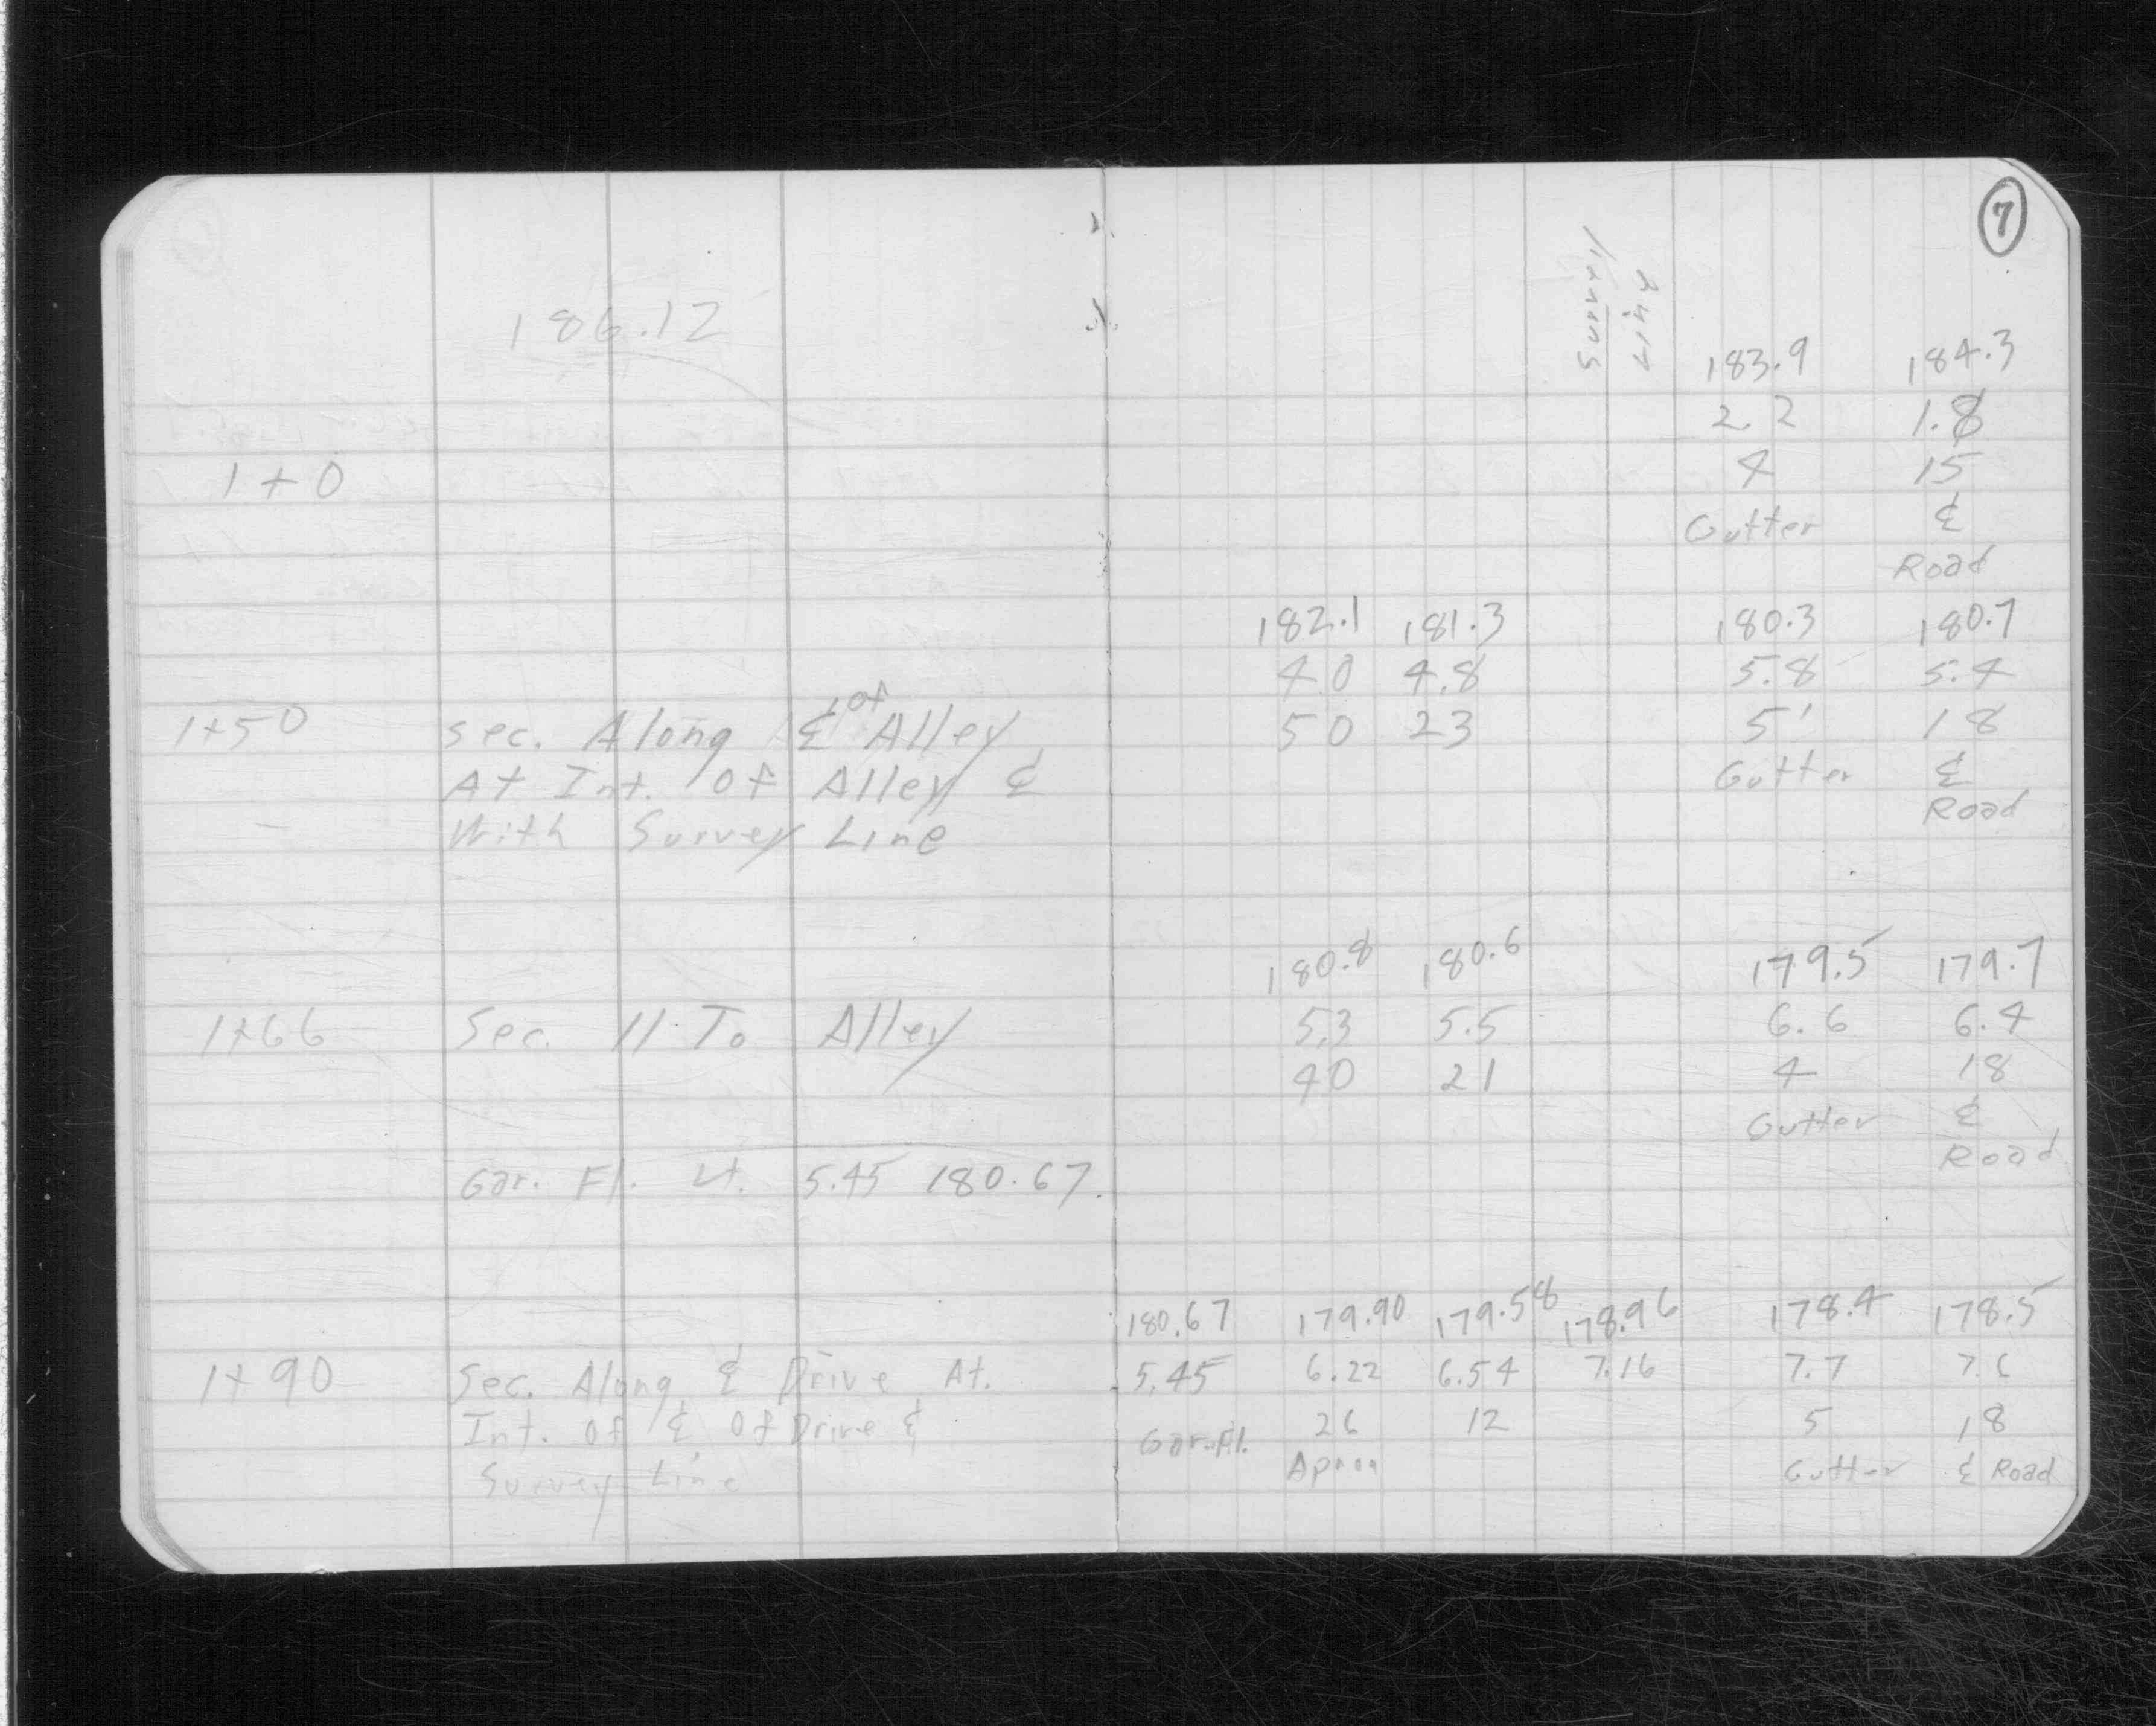 7
Survey
Line
186.12
183.9 184.3
2.2 1.8
1+0 4 15
Gutter ℄
Road
182.1 181.3 180.3 180.7
4.0 4.8 5.8 5.4
1+50 Sec. Along ℄ of Alley 50 23 5' 18
At Int. Of Alley ℄ Gutter ℄
With Survey Line Road
180.8 180.6 179.5 179.7
1+66 Sec. // To Alley 5.3 5.5 6.6 6.4
40 21 4 18
Gutter ℄
Road
Gar. Fl. Lt. 5.45 180.67
180.67 179.90 179.58 178.96 178.4 178.5
1+90 Sec. Along ℄ Drive At. 5.45 6.22 6.54 7.16 7.7 7.6
Int. Of ℄ Of Drive & Gar. Fl. 26 12 5 18
Survey Line Apron Gutter ℄ Road